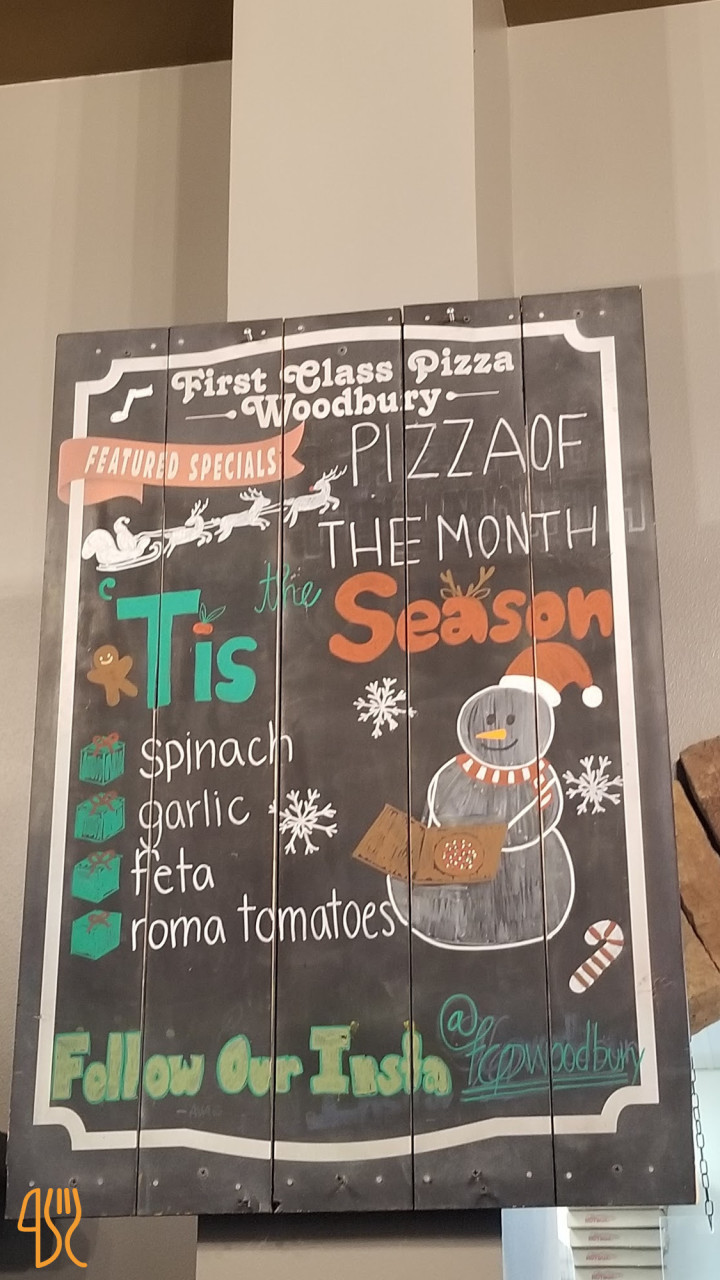 First Class Pizza
Woodbury
FEATURED SPECIALS
PIZZA OF
THE MONTH
'Tis the Season
spinach
garlic
feta
roma tomatoes
Follow Our Insta @fcpwoodbury